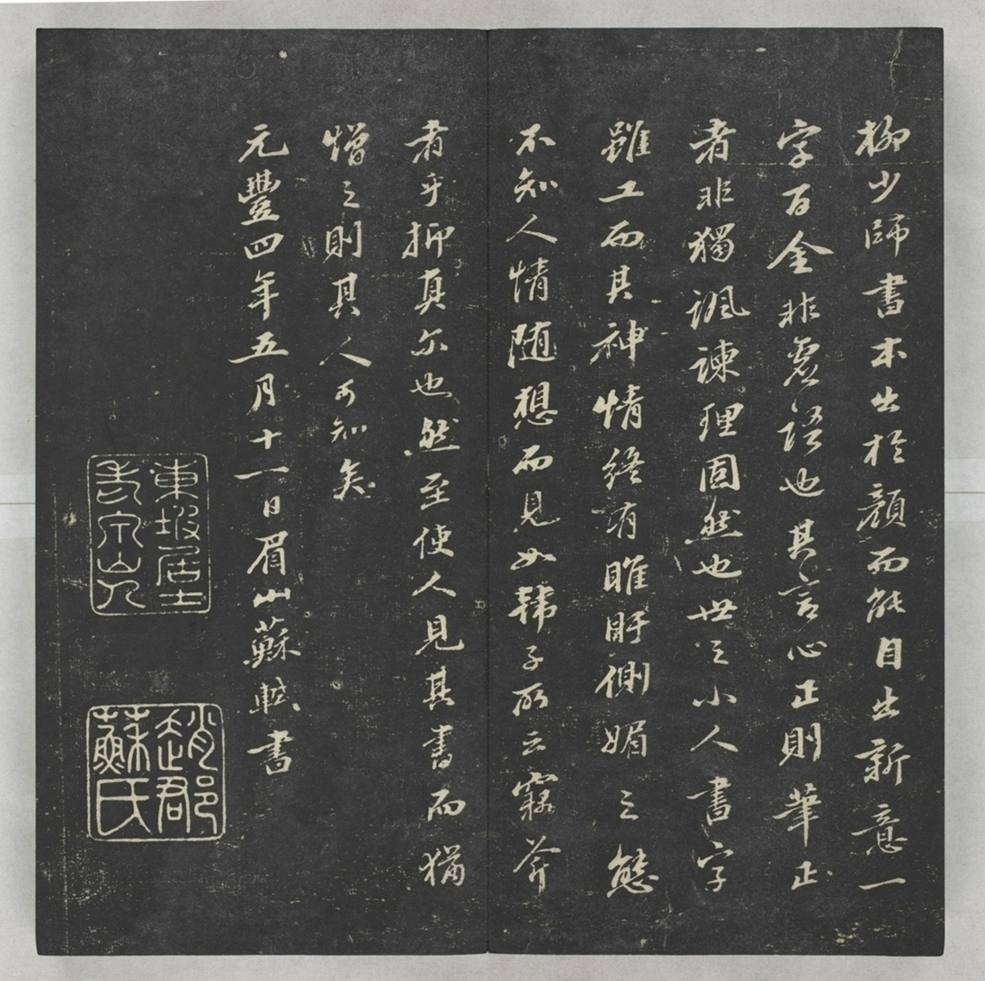 柳少師書本出於顔而能自出新意一
字百金非虛語也其言心正則筆正
者非獨諷諫理固然也世之小人書字
雖工而其神情終有睢盱側媚之態
不知人情随想而見如韩子所云竊斧
者乎抑真尔也然至使人見其書而猶
憎之則其人可知矣
元豐四年五月十一日眉山蘇軾書
東坡居士
老泉山人
趙郡
蘇氏